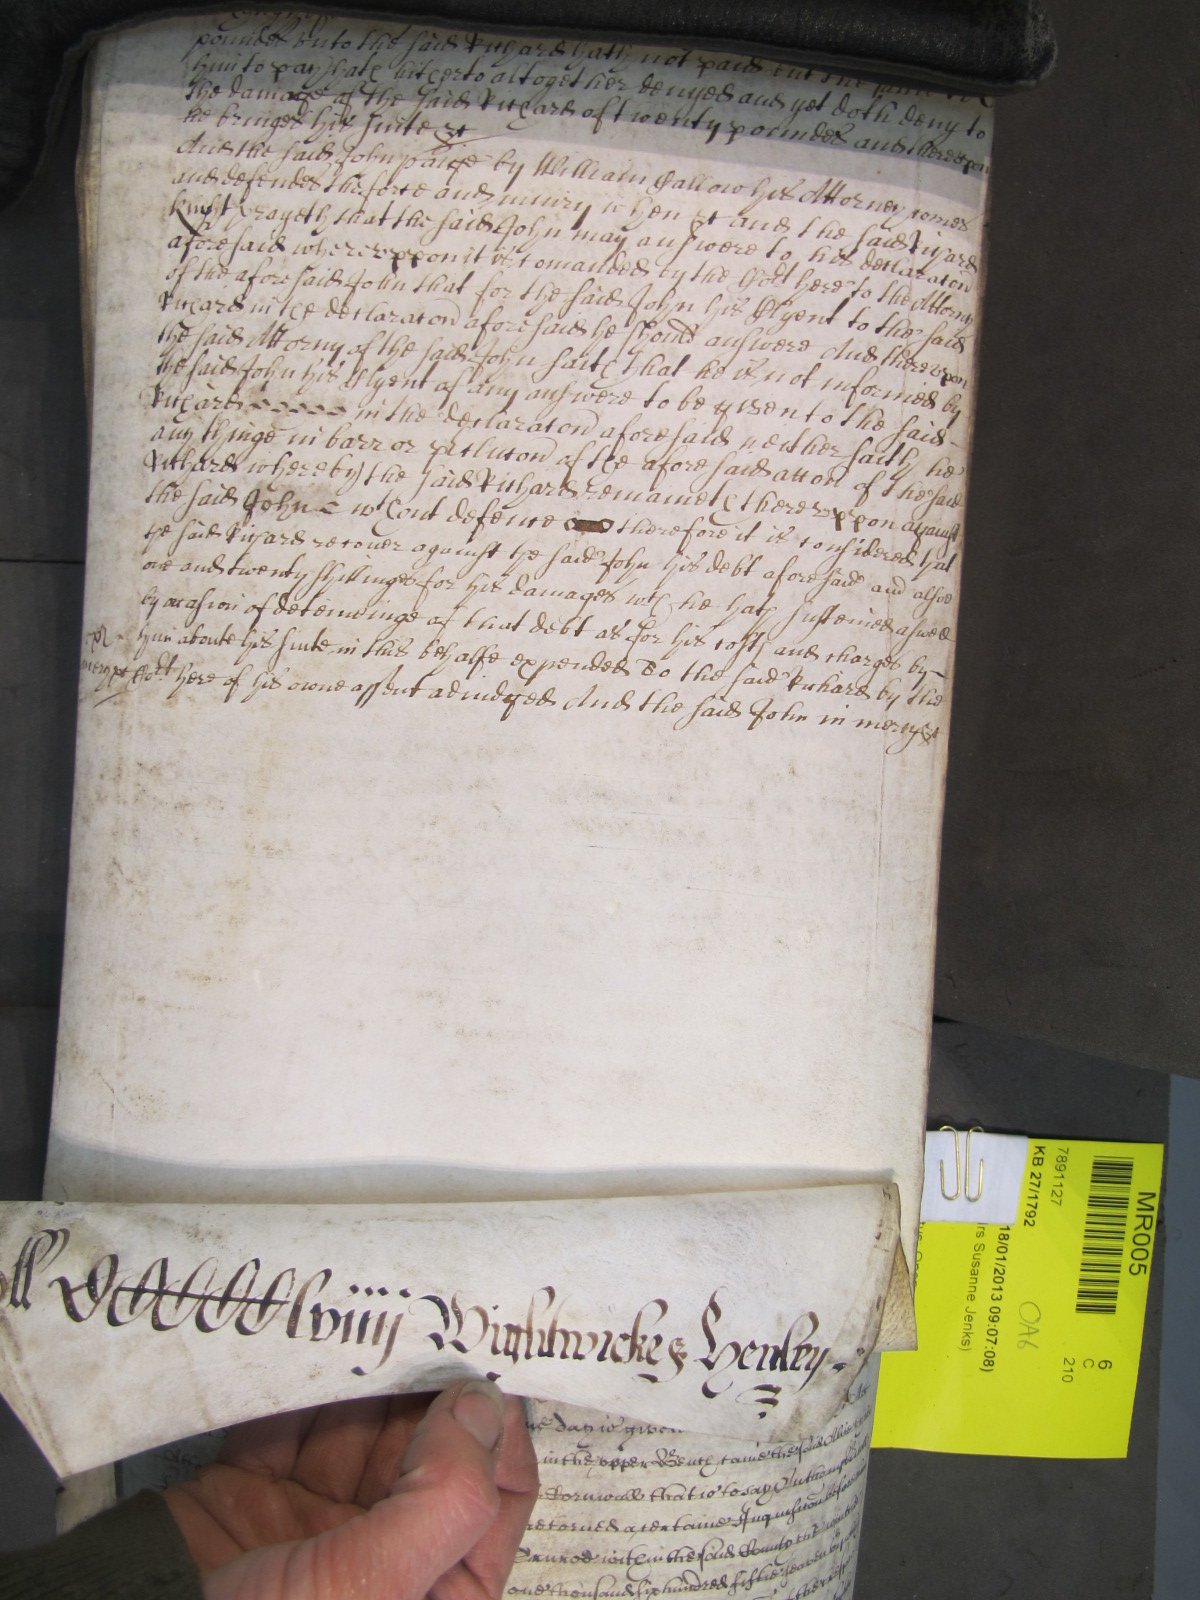 pounds unto the said Richard hath not paid but the same to
him to pay hath hitherto altogether denyed and yet doth deny to
the damage of the said Richard of twenty poundes and thereupon
he bringes his suite &c
And the said John paige by William Gallow his Attorney comes
and defendes the force and iniury when &c and the said Richard
knight prayeth that the said John may answere to his declaracon
aforesaid whereuppon it is comanded by the Cort here to the Attorny
of the aforesaid John that for the said John his Clyent to the said
Richard in the declaracon aforesaid he should answere And thereupon
the said Attorny of the said John saith that he is not informed by
the said John his Clyent of any answere to be given to the said
Richard in the declaracon aforesaid neither saith he
any thinge in barr or preclucon of the aforesaid accon of the said
Richard whereby the said Richard remaineth thereuppon against
the said John wthout defence therefore it is considered that
the said Richard recouer against the said John his debt aforesaid and alsoe
one and twenty shillinges for his damages wch he hath susteined aswell
by occasion of deteininge of that debt as for his costs and charges by
him aboute his suite in this behalfe expended To the said Richard by the
mercye
Cort here of his owne assent adiudged And the said John in mercy &c
ll DCCCCClviiij Wightwicke & Henley
day is given
in the upper Bench came the said
Cornwall that is to say
retorned a certaine Inquisicon
within the said County
one thousand six hundred fiftie seaven
MR005
7891127
KB 27/1792
18/01/2013 09:07:08)
rs Susanne Jenks)
OA6
6
C
210